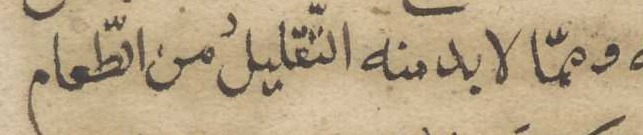 وممّا لا بد منه التّقليلُ من الطّعام